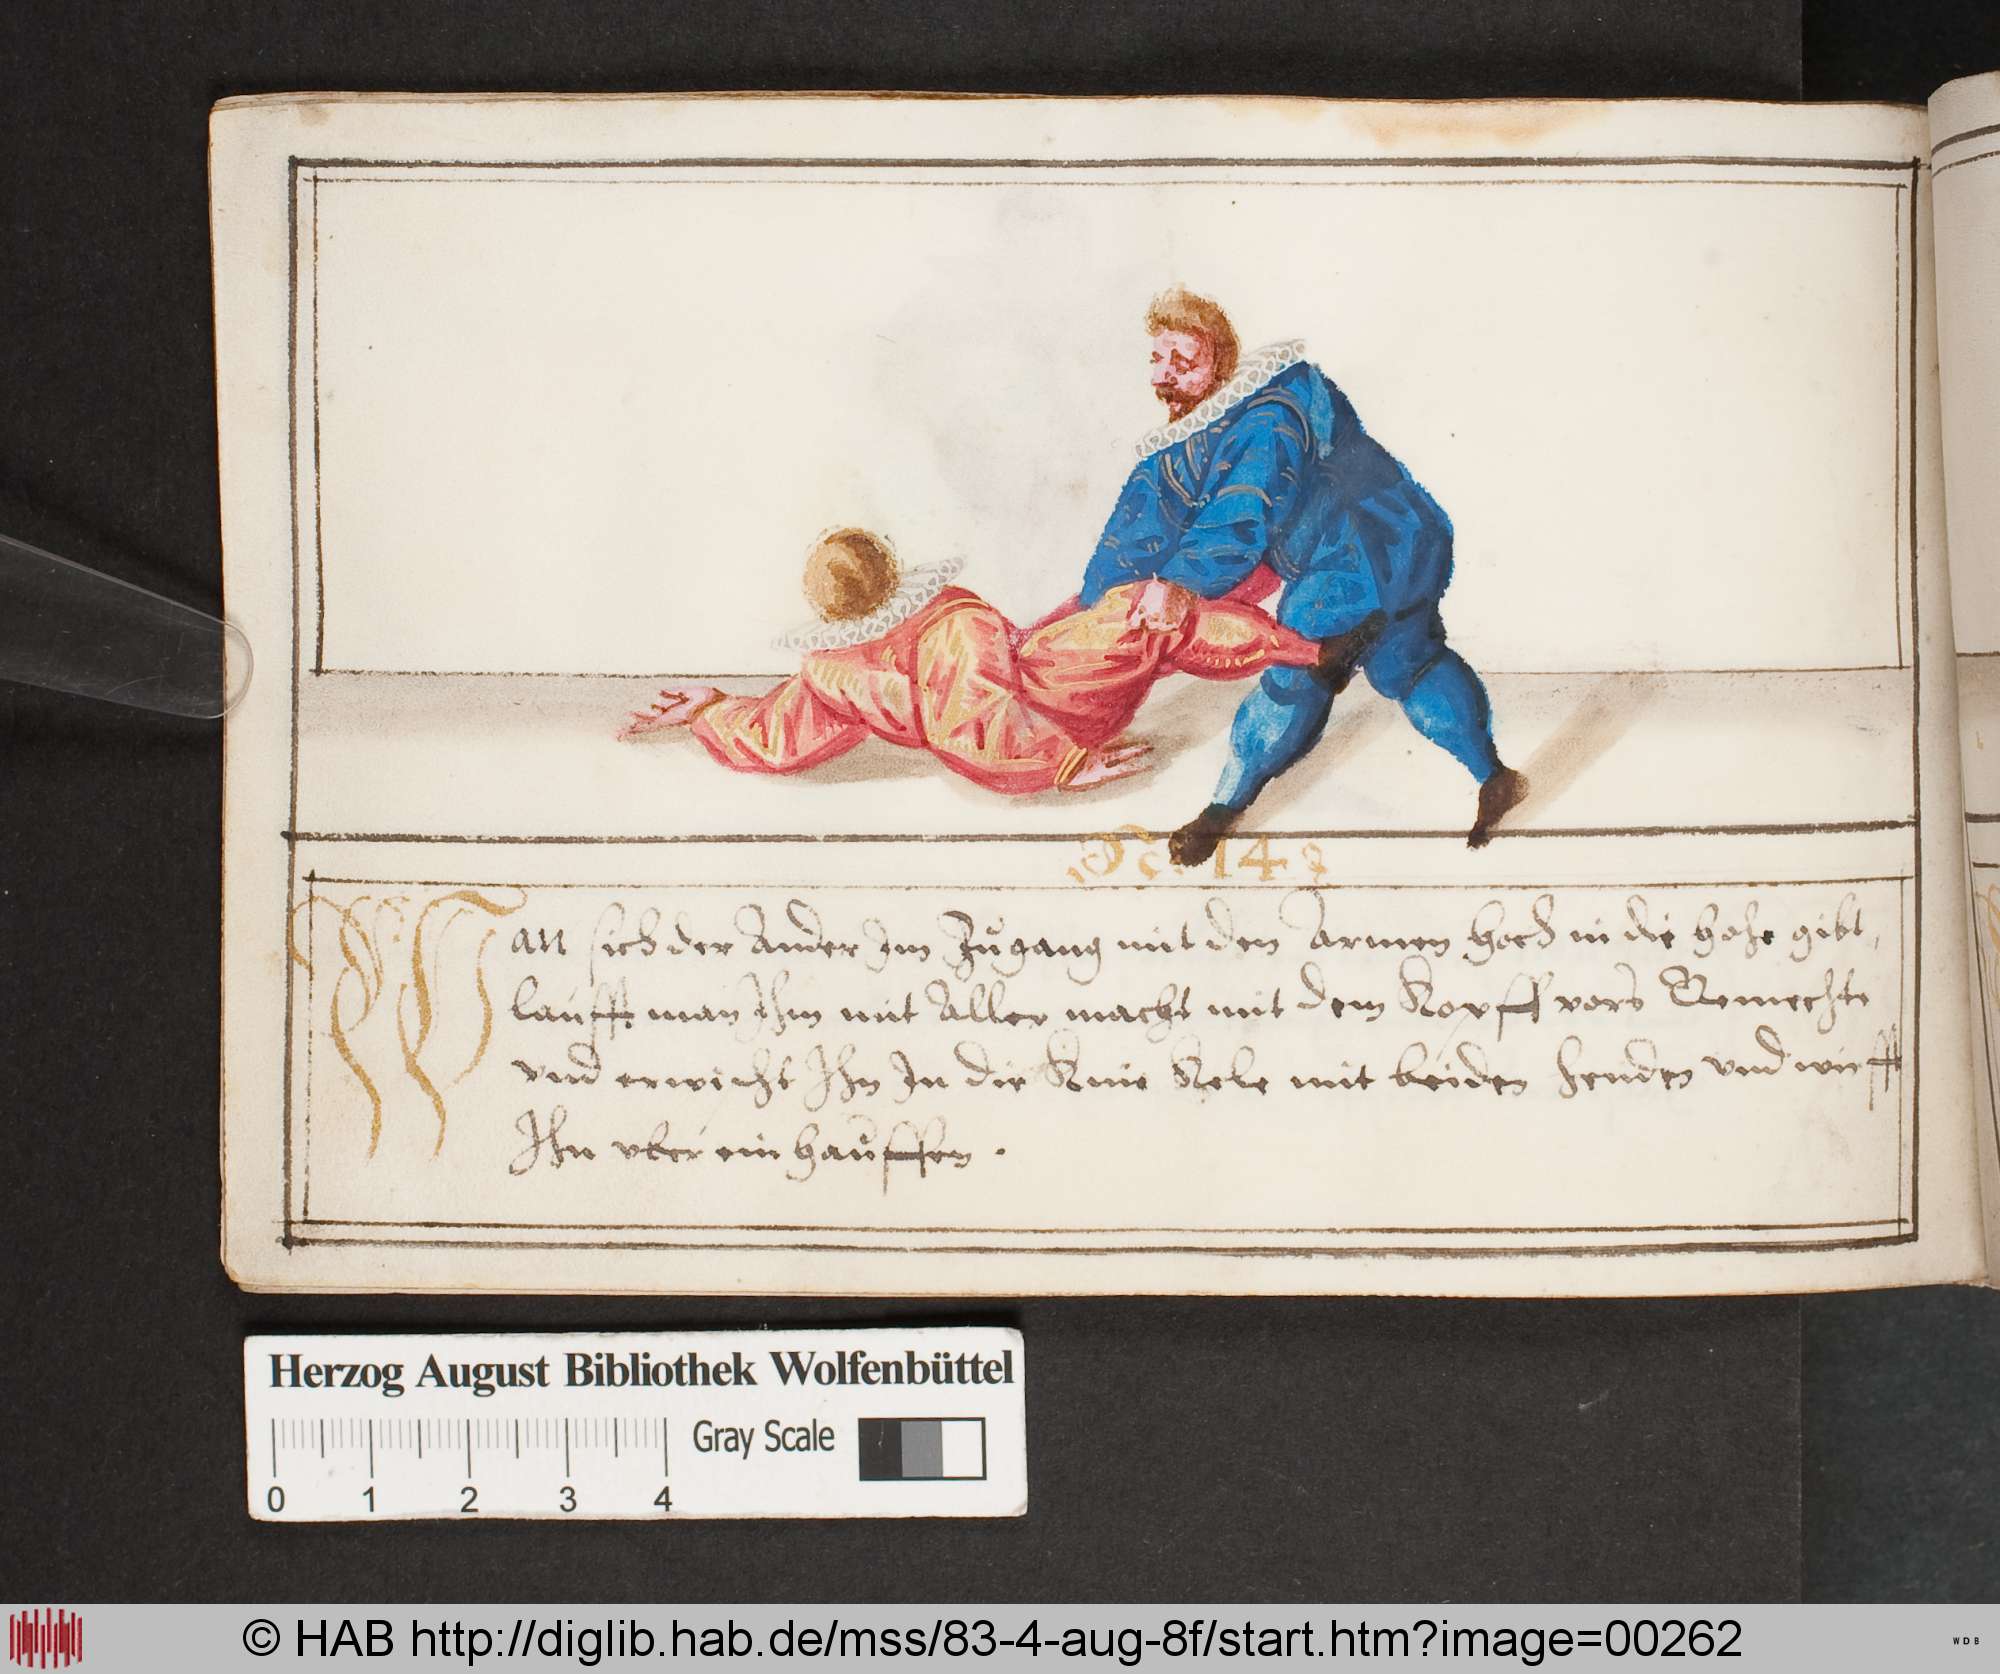 No: 14
Wan sich der Ander Im Zugang mit den Armen hoch in die hohe gibt,
laufft man Ihm mit Aller macht mit dem Kopff vors Gemechte
vnd erwischt Ihn In die Knie Kele mit beiden henden vnd wirfft
Ihn vber ein hauffen.
Herzog August Bibliothek Wolfenbüttel
Gray Scale
0 1 2 3 4
© HAB http://diglib.hab.de/mss/83-4-aug-8f/start.htm?image=00262
WDB